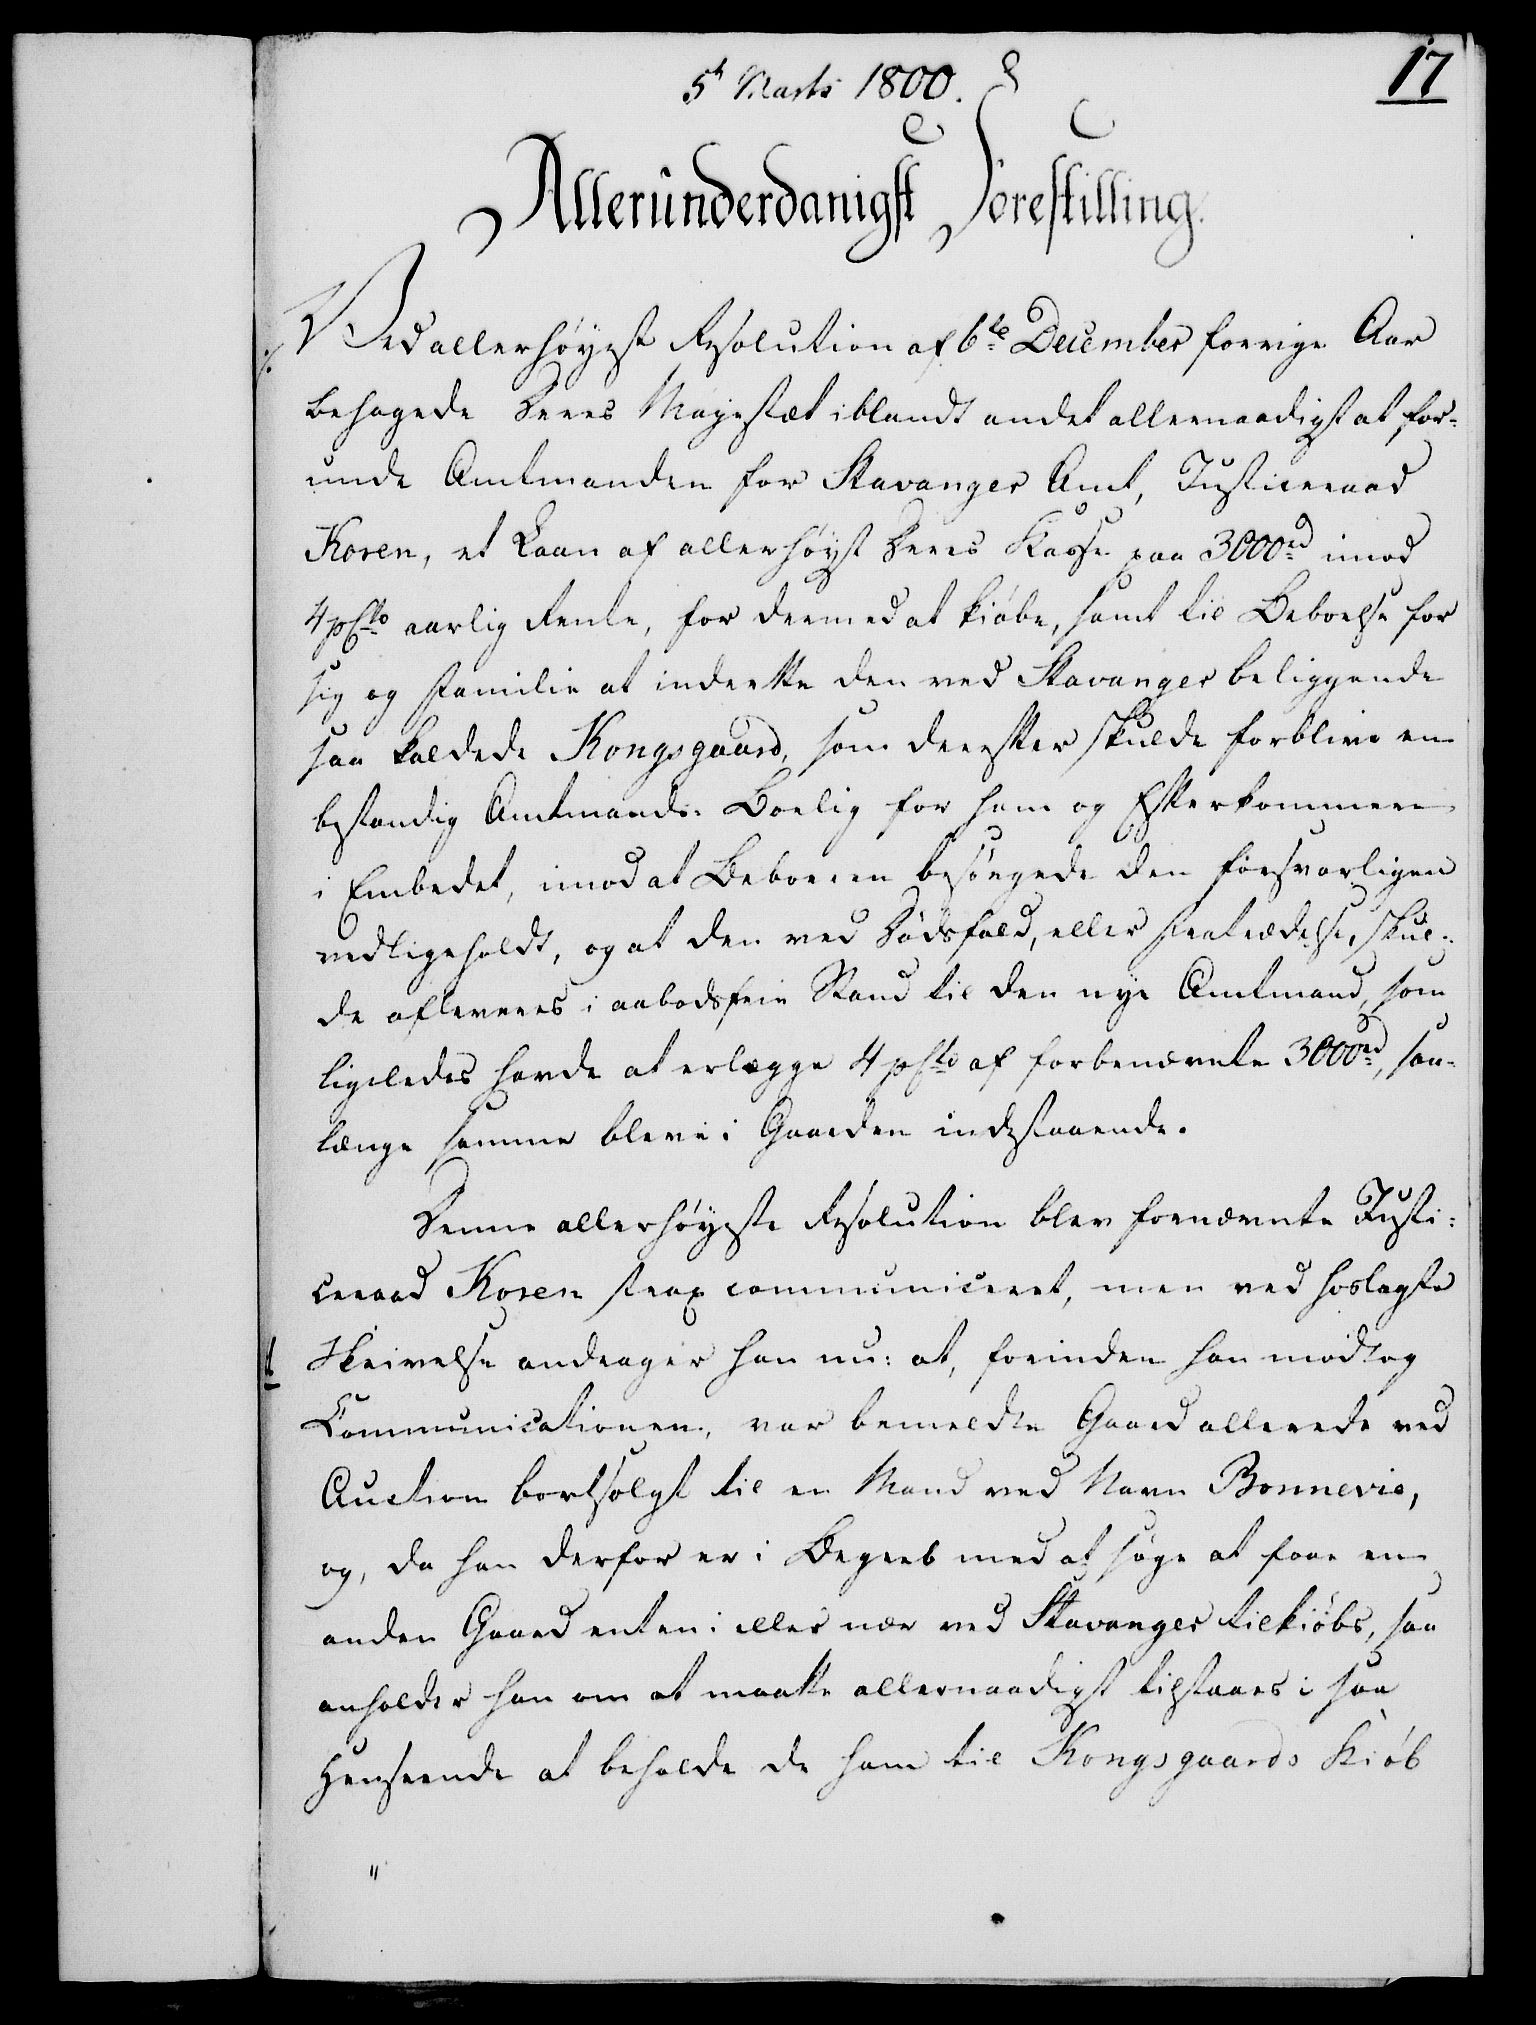 17
5t Marts 1800.
Allerunderdanigst Forestilling.
Ved allerhøyeste Resolution af 6te December forrige Aar
behagede Deres Majestæt iblandt andet allernaadigst at for-
unde Amtmanden for Stavanger Amt, Justiceraad
Koren, et Laan af allerhøyst Deres Kasse paa 3000rd imod
4 pCto aarlig Rente, for dermed at kiøbe, samt til Beboelse for
sig og Familie at indrette den ved Stavanger beliggende
saa kaldede Kongsgaard, som derefter skulde forblive en
bestandig Amtmands-Boelig for ham og Efterkommere
i Embedet, imod at Beboeren besørgede den forsvarligen
vedligeholdt, og at den ved Dødsfald, eller Fratrædelse, skul-
de afleveres i aabodsfrie Stand til den nye Amtmand, som
ligeledes havde at erlægge 4 pCto af forbenævnte 3000rd, saa-
længe samme bleve i Gaarden indestaaende.
Denne allerhøyeste Resolution blev fornævnte Justi-
ceraad Koren strax communiceret, men ved hoslagte
Skrivelse andrager han nu: at, forinden han modtog
Communicationen, var bemeldte Gaard allerede ved
Auction bortsolgt til en Mand ved Navn Bonnevie,
og, da han derfor er i Begreb med at søge at faae en
anden Gaard enten i eller nær ved Stavanger tilkiøbs, saa
anholder han om at maatte allernaadigst tilstaaes i saa
Henseende at beholde de ham til Kongsgaards Kiøb
"